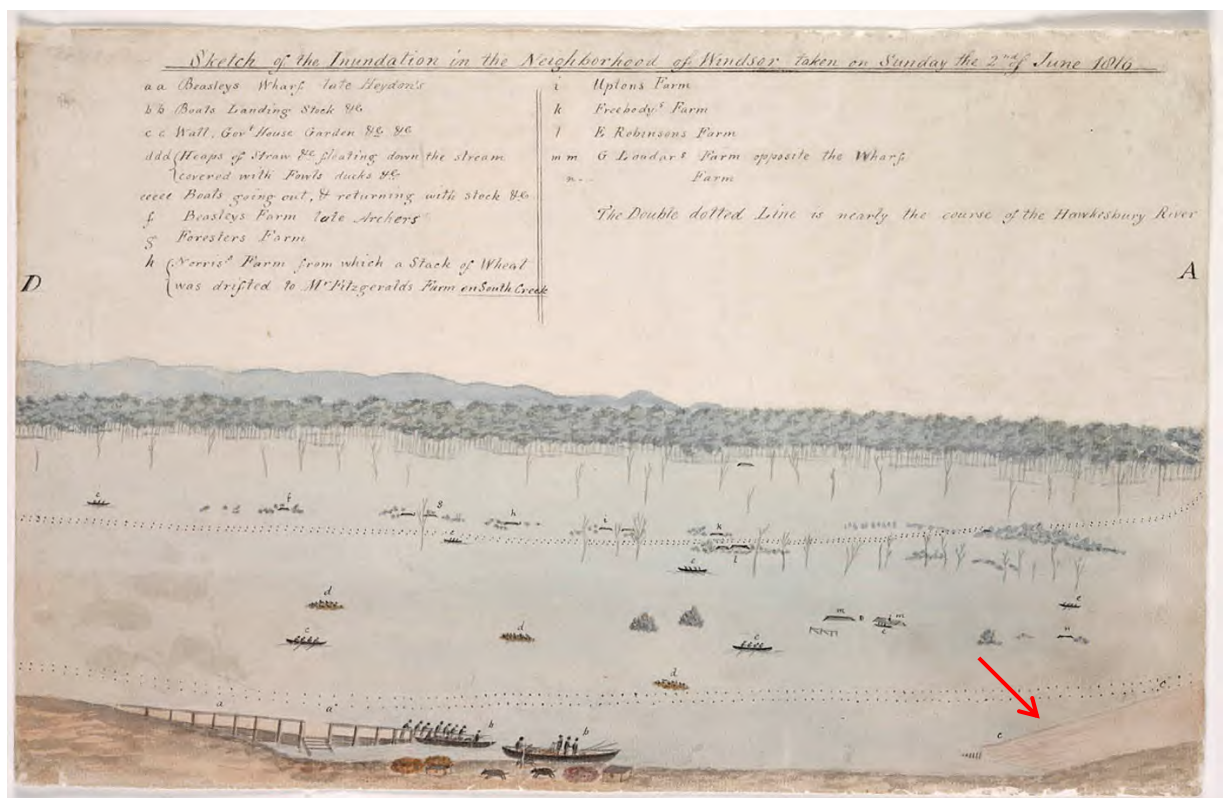 Sketch of the Inundation in the Neighborhood of Windsor taken on Sunday the 2nd of June 1816
a a Beasleys Wharf late Heydon's
b b Boats Landing Stock &c
c c Wall, Govt House Garden &c &c
ddd (Heaps of Straw &c floating down the stream
covered with Fowls ducks &c
eeeee Boats going out, & returning with stock &c
f Beasleys Farm late Archers
g Foresters Farm
h (Norris's Farm from which a Stack of Wheat
was drifted to Mr Fitzgeralds Farm on South Creek
i Uptons Farm
k Freebody's Farm
l E Robinsons Farm
m m G Loudars Farm opposite the Wharf
n... Farm
The Double dotted Line is nearly the course of the Hawkesbury River
D
A
e
f
g
h
i
k
l
e
d
m
m
e
e
d
e
n
e
d
a
a
b
b
c
c